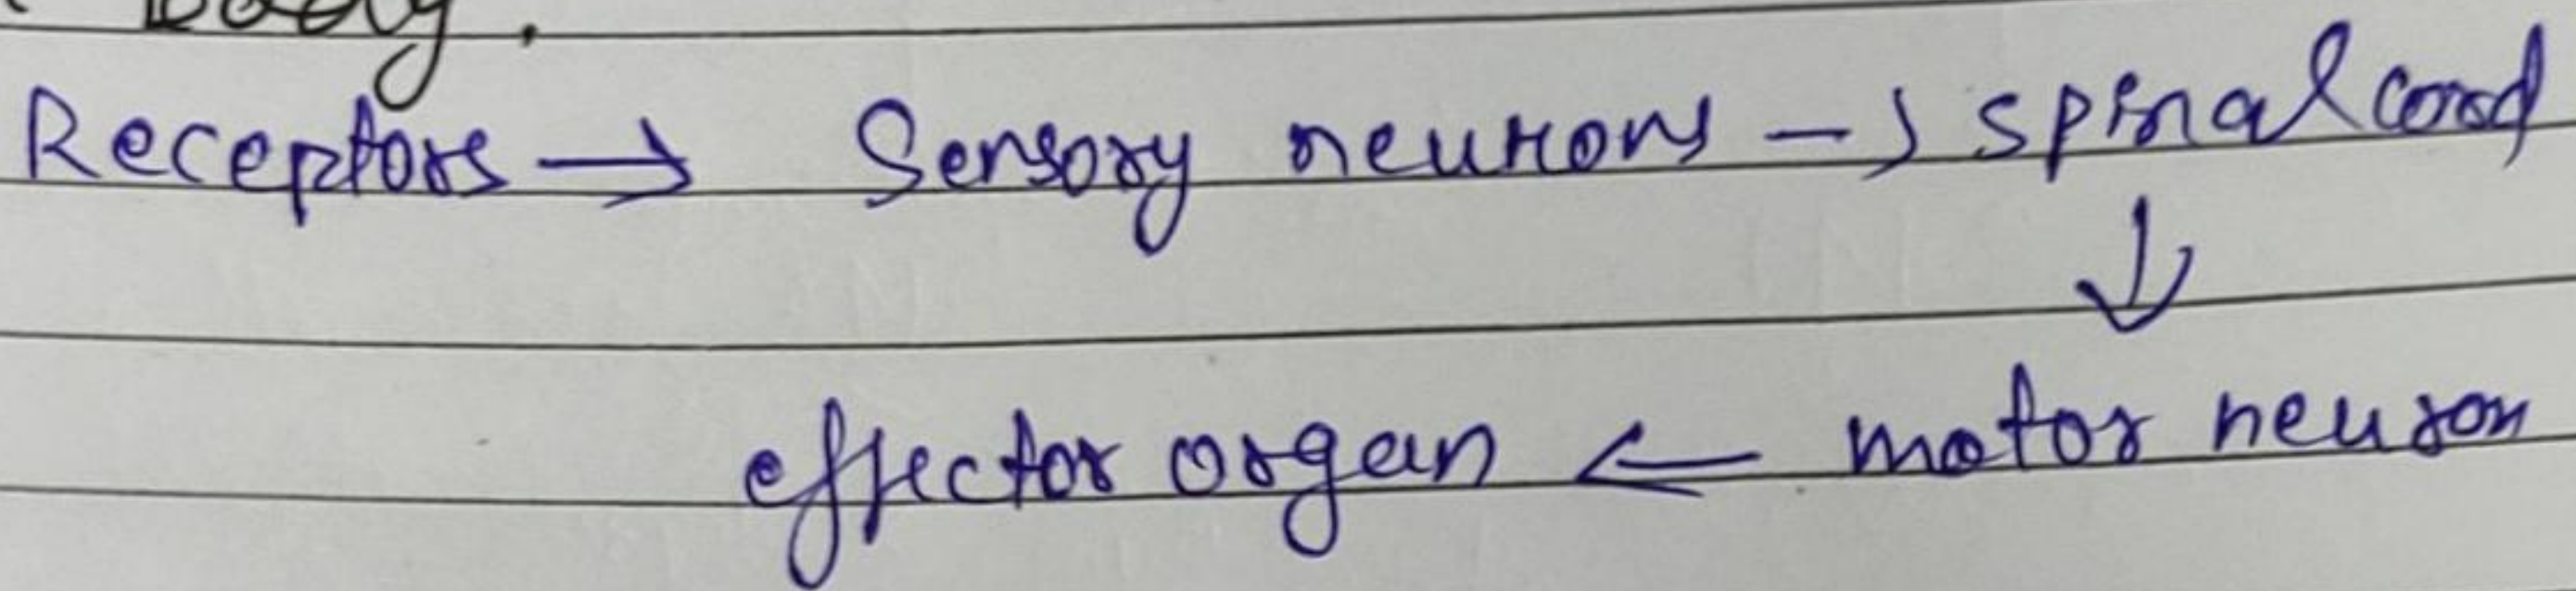 body.
Receptors → Sensory neurons → spinal cord
↓
effector organ ← motor neuron